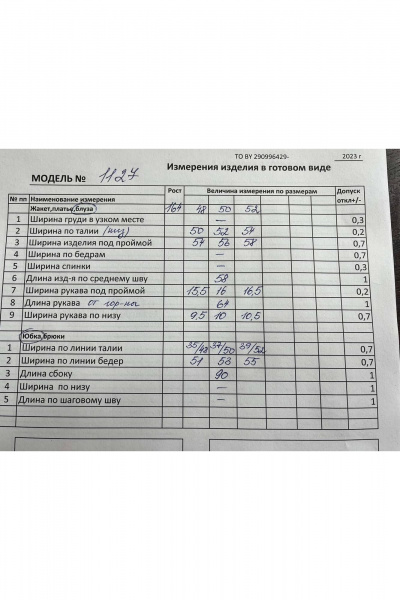 ТО BY 290996429- 2023 г
МОДЕЛЬ № 1127 Измерения изделия в готовом виде
№ пп Наименование измерения Рост Величина измерения по размерам Допуск откл+/-
Жакет,платье,блуза 164 48 50 52
1 Ширина груди в узком месте — 0,3
2 Ширина по талии (низ) 50 52 54 0,2
3 Ширина изделия под проймой 54 56 58 0,7
4 Ширина по бедрам — 0,7
5 Ширина спинки — 0,3
6 Длина изд-я по среднему шву 58 1
7 Ширина рукава под проймой 15,5 16 16,5 0,2
8 Длина рукава от гор-ны 64 1
9 Ширина рукава по низу 9,5 10 10,5 0,7
Юбка,брюки
1 Ширина по линии талии 35/48 37/50 39/52 0,7
2 Ширина по линии бедер 51 53 55 0,7
3 Длина сбоку 90 1
4 Ширина по низу — 1
5 Длина по шаговому шву — 1